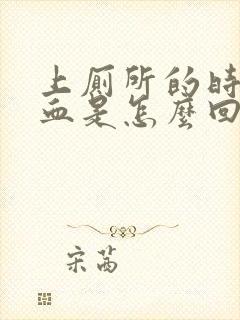 上厕所的时
血是怎麽回
宋茜